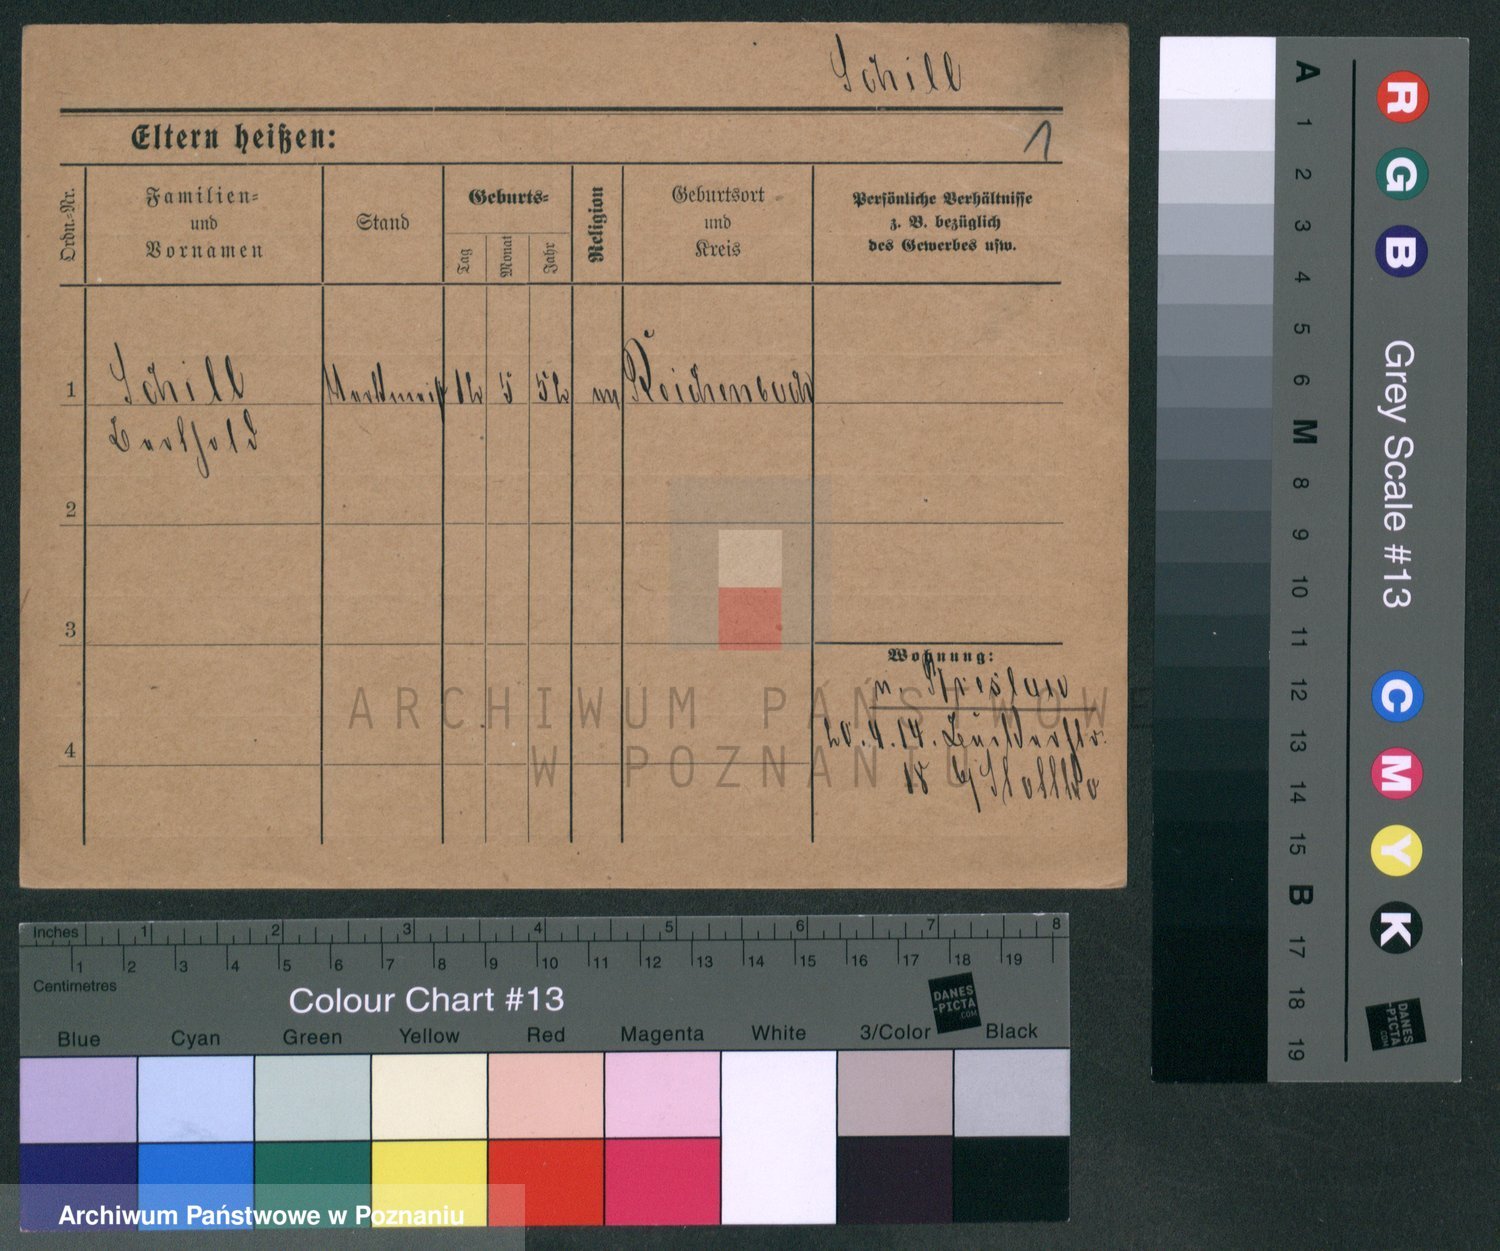 Schill
Eltern heißen:
1
Ordn.-Nr.
Familien-
und
Vornamen
Stand
Geburts-
Tag
Monat
Jahr
Religion
Geburtsort
und
Kreis
Persönliche Verhältnisse
z. B. bezüglich
des Gewerbes usw.
1
Schill
12 5 52
Reichenbach
Berthold
2
3
4
Wohnung:
n. Breslau
20.4.14.
18
ARCHIWUM PAŃSTWOWE
W POZNANIU
Inches 1 2 3 4 5 6 7 8
1 2 3 4 5 6 7 8 9 10 11 12 13 14 15 16 17 18 19
Centimetres
Colour Chart #13
DANES
-PICTA
.COM
Blue Cyan Green Yellow Red Magenta White 3/Color Black
Archiwum Państwowe w Poznaniu
A 1 2 3 4 5 6 M 8 9 10 11 12 13 14 15 B 17 18 19
R G B
Grey Scale #13
C M Y K
DANES
-PICTA
.COM